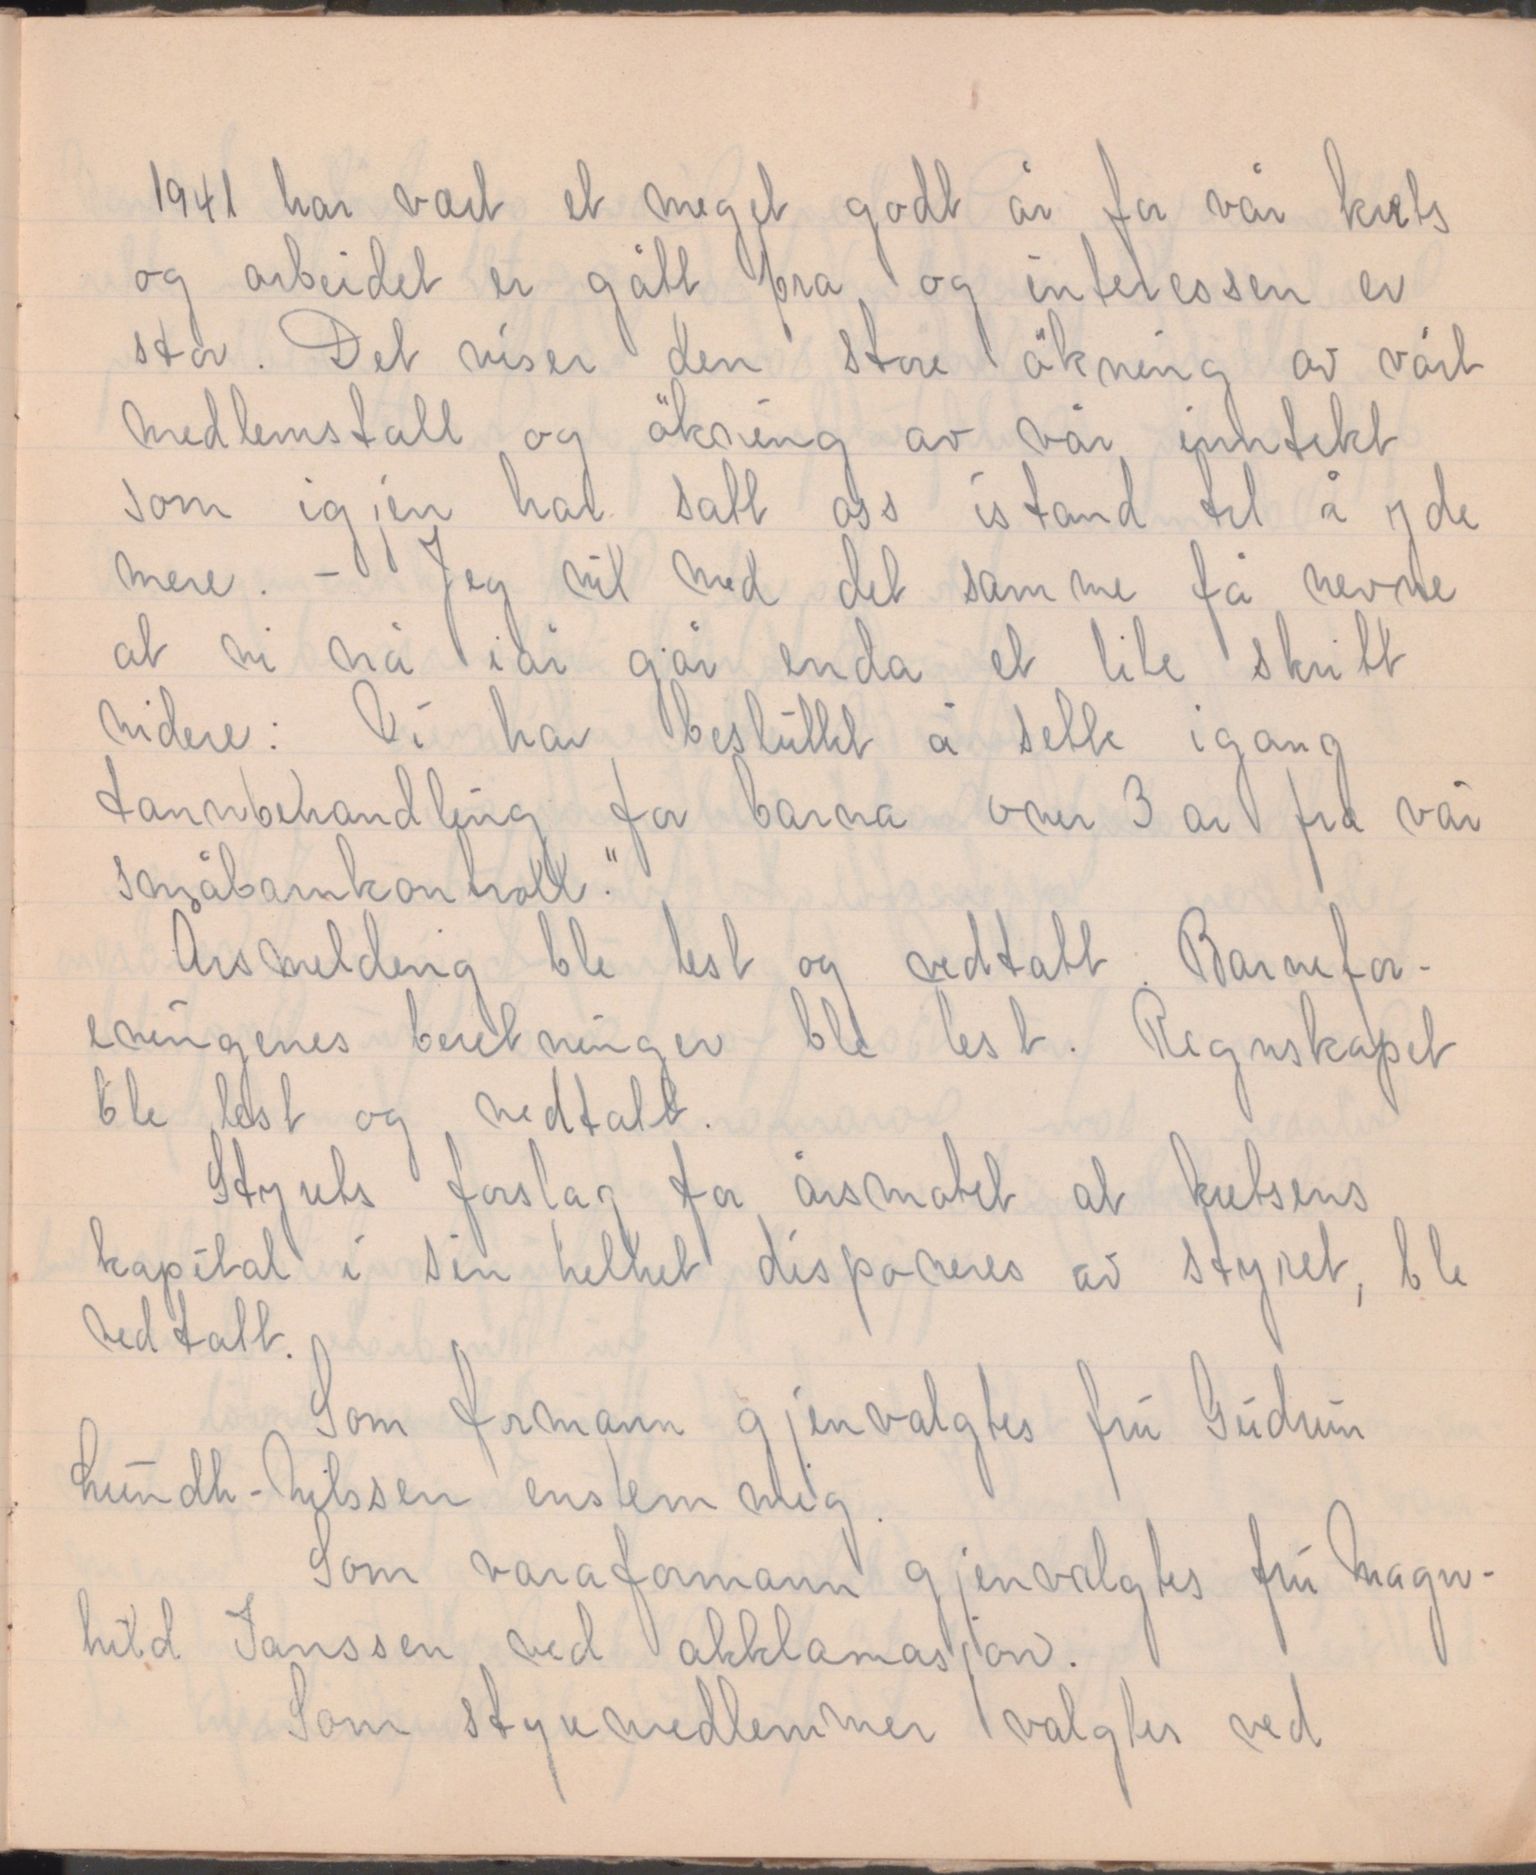 1941 har vært et meget godt år for vår krets
og arbeidet er gått bra og interessen er
stor. Det viser den store økning av vårt
medlemstall og økning av vår inntekt
som igjen har satt oss istand til å yde
mere. - Jeg vil med det samme få nevne
at vi nå iår går enda et lite skritt
videre: Vi har besluttet å sette igang
tannbehandling for barna over 3 år fra vår
småbarnkontroll."
Årsmelding ble lest og vedtatt. Barnefor-
eningenes beretninger ble lest. Regnskapet
ble lest og vedtatt.
Styrets forslag for årsmøtet at kretsens
kapital i sin helhet disponeres av styret, ble
vedtatt.
Som formann gjenvalgtes fru Gudrun
Lundh-Nilssen enstemmig.
Som varaformann gjenvalgtes fru Magn-
hild Janssen ved akklamasjon.
Som styremedlemmer valgtes ved